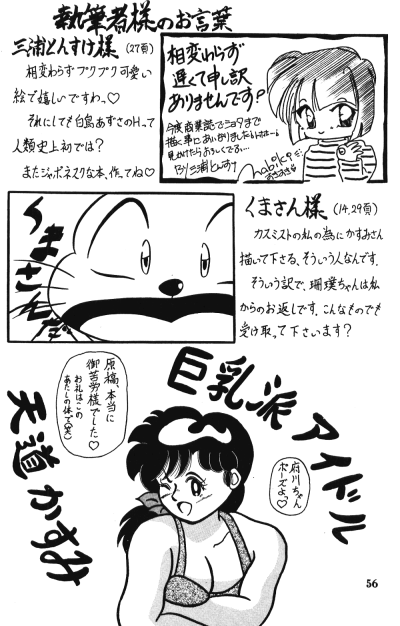 執筆者様のお言葉
三浦とんすけ様 (27頁)
相変わらずプクプク可愛い
絵で嬉しいですわ。♡
それにしても白鳥あずさのHって
人類史上初では？
またジャポネスクな本、作ってね♡
相変わらず
遅くて申し訳
ありませんです？
今度商業誌でショタまで
描く事にあいなりましたトホホー
見かけたらよろしくです…
BY三浦とんすけ
くまさんだ
くまさん様 (14,29頁)
カスミストの私の為にかすみさん
描いて下さる、そういう人なんです。
そういう訳で、珊璞ちゃんは私
からのお返しです。こんなものでも
受け取って下さいます？
原稿、本当に
御苦労様でした♡
お礼はこの
あたしの体で(笑)
巨乳派アイドル
天道かすみ
府川ちゃん
ポーズよっ♡
56